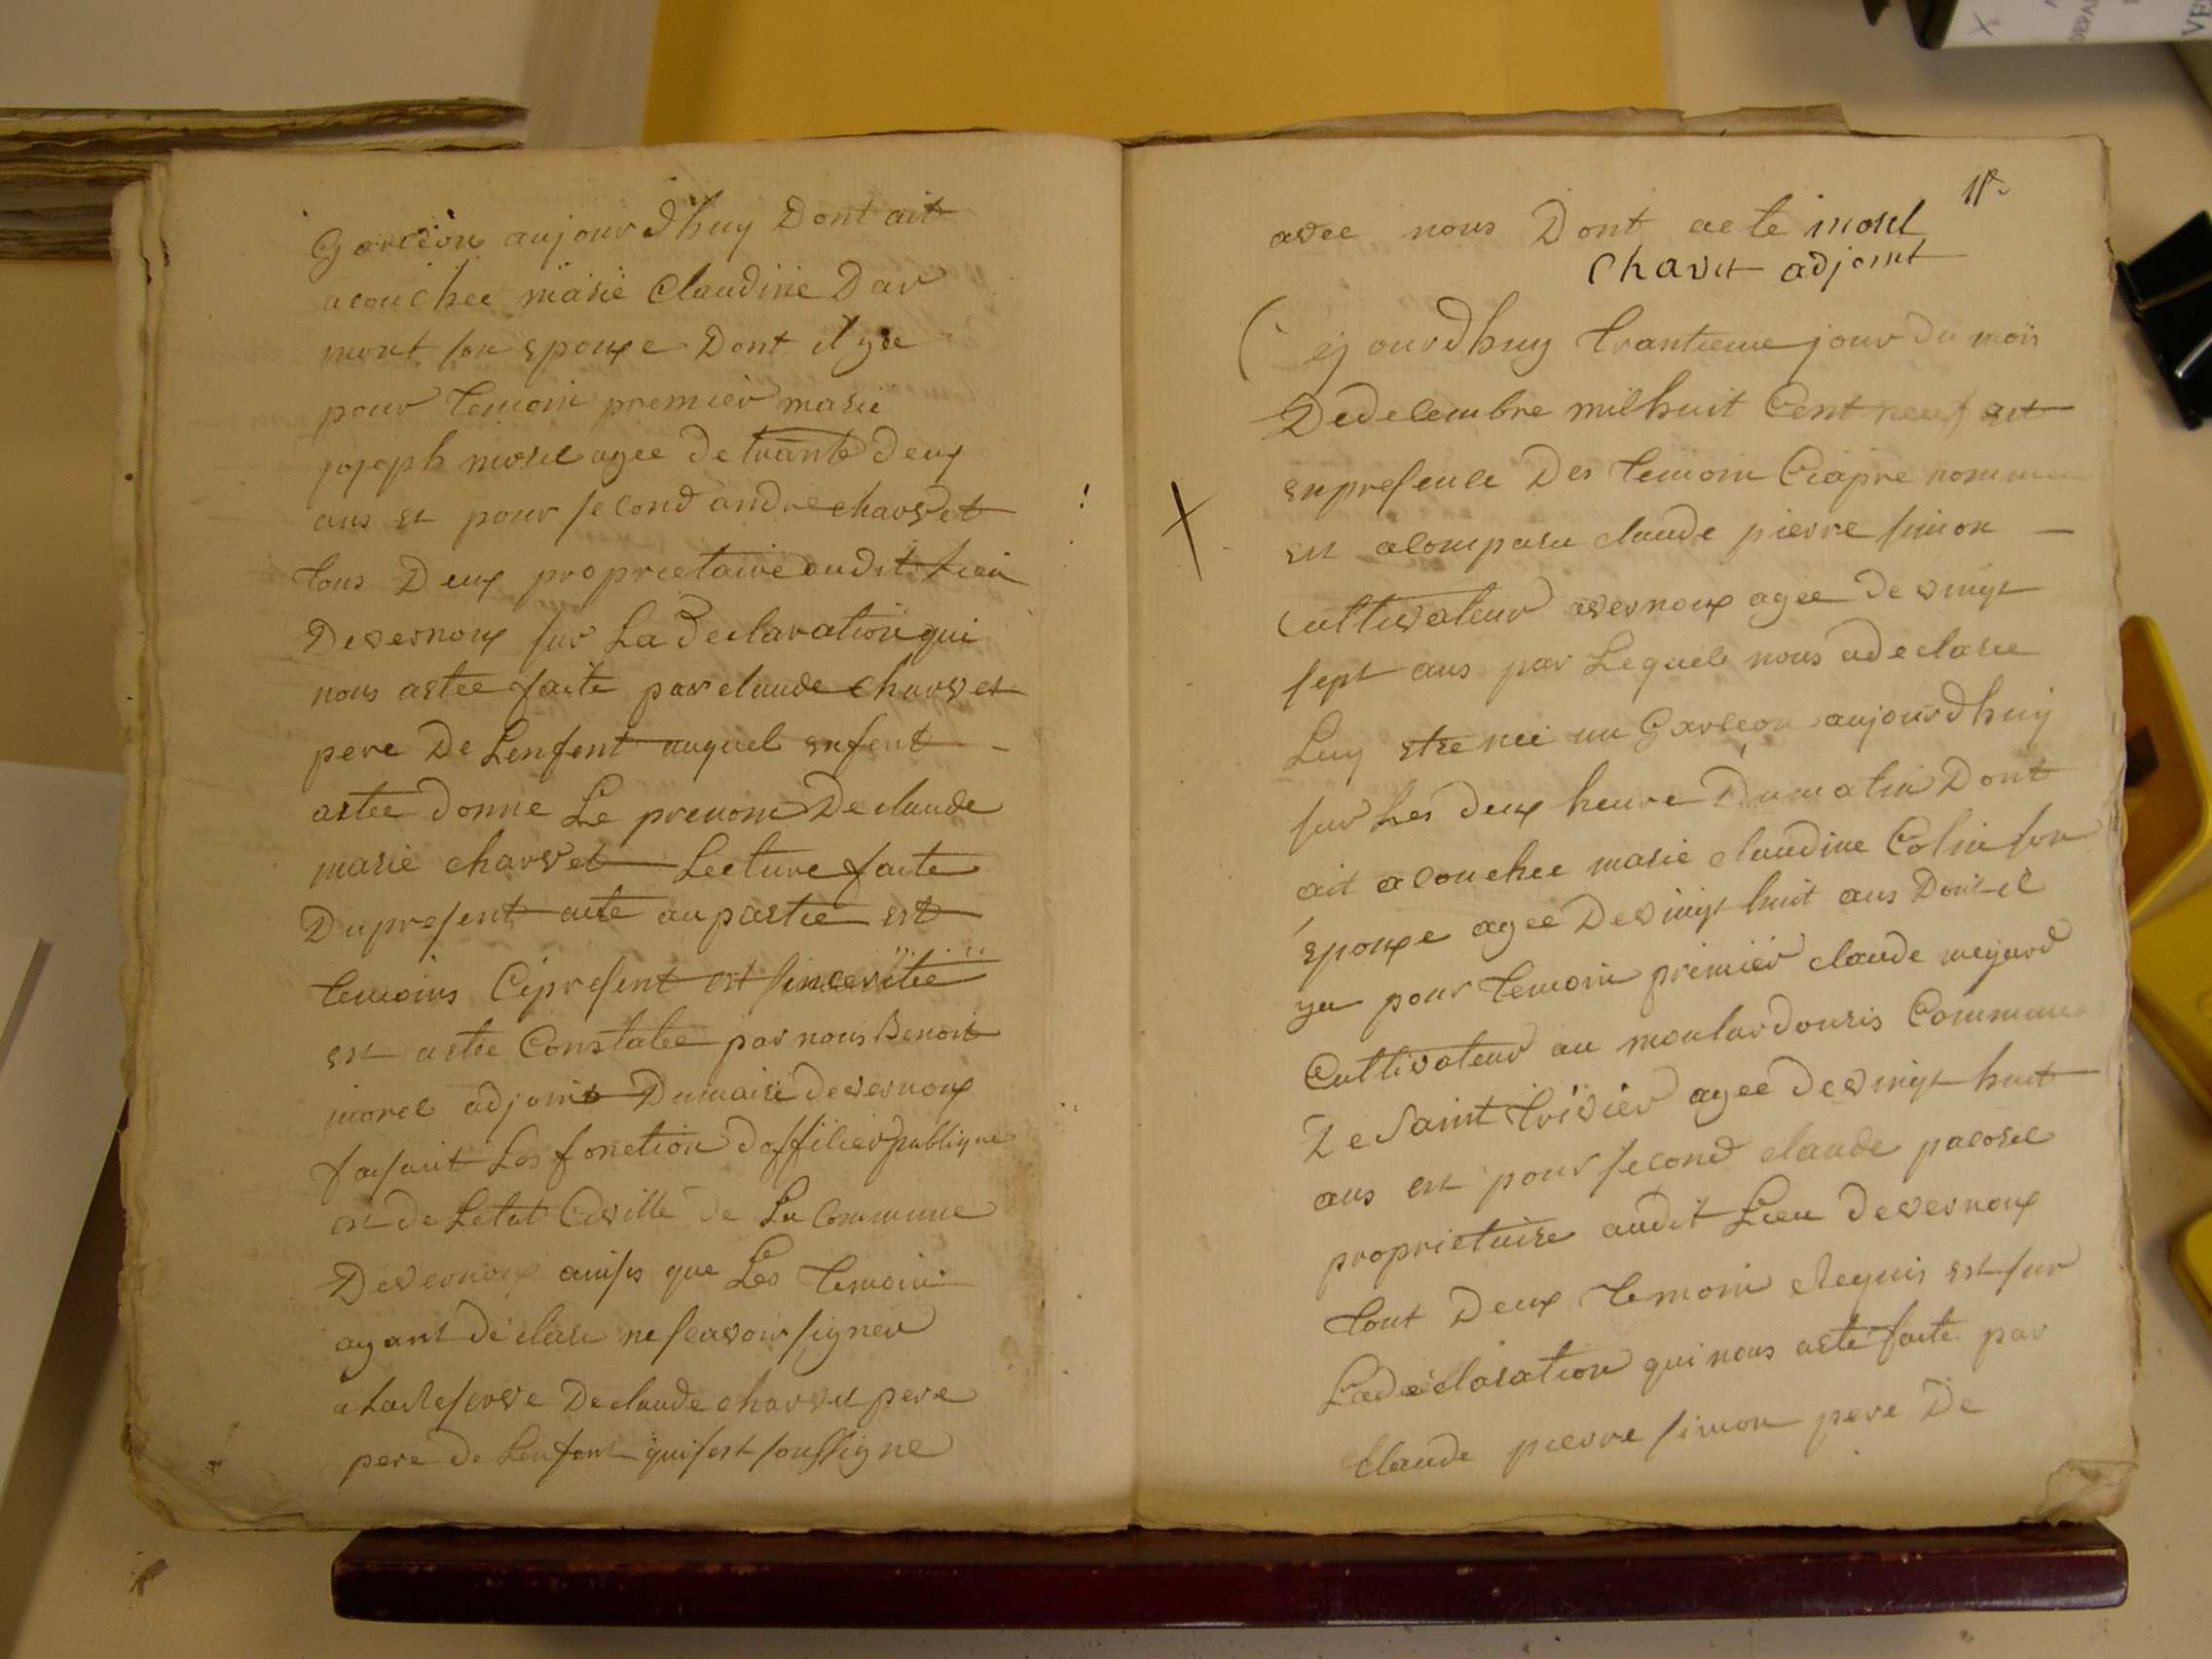 Garcion aujourdhuy Dont ait
acouchee marie Claudine Dar
mont son epouxe Dont il y a
pour temoin premier marie
joseph morel agee de trante deux
ans et pour second andre charvet
tous Deux proprietaire audit lieu
De vernoux sur La declaration qui
nous a etee faite par claude charvet
pere De Lenfent auquel enfent
a etee donne Le prenom De claude
marie charvet Lecture faite
Du present acte au partie et
temoins Ci present et sinceritee
et a etee Constatee par nous Benoit
morel adjoint Du maire de vernoux
faisant Les fonction dofficier publique
et de Letat Civille de La Commune
De vernoux ainsis que Les temoin
ayant declare ne scavoir signer
a la Reserve De claude charvet pere
pere de Lenfent qui sest soussigne
avec nous Dont acte morel
Charvet adjoint
Cejourdhuy trantieme jour du mois
De decembre mil huit Cent neuf et
en presence Des temoin Ci apre nomme
et a comparu claude pierre simon
Cultivateur a vernoux agee de vingt
sept ans par Lequel nous a declaree
Luy etre nee un Garceon aujourdhuy
sur Les deux heure Du matin Dont
ait acouchee marie claudine Colin son
epouxe agee De vingt huit ans Dont il
y a pour temoin premier claude meyard
Cultivateur au moulardouris Commune
De saint trivier agee de vingt huit
ans et pour second claude pacorel
proprietaire audit Lieu de vernoux
tout Deux temoin Requis et sur
La declaration qui nous a ete faite par
Claude pierre simon pere De